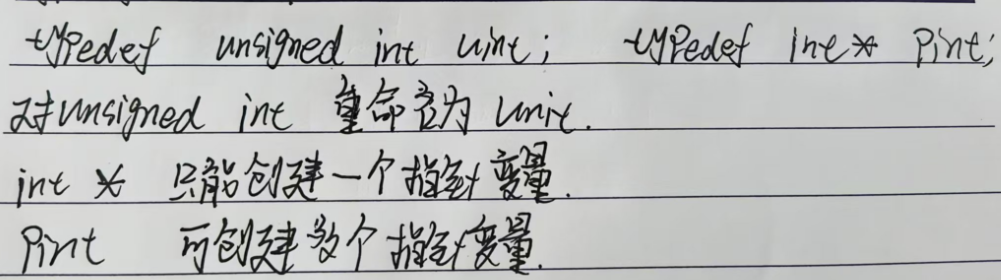 typedef unsigned int uint; typedef int* Pint;
对unsigned int 重命名为 unit.
int * 只能创建一个指针变量.
Pint 可创建多个指针变量.